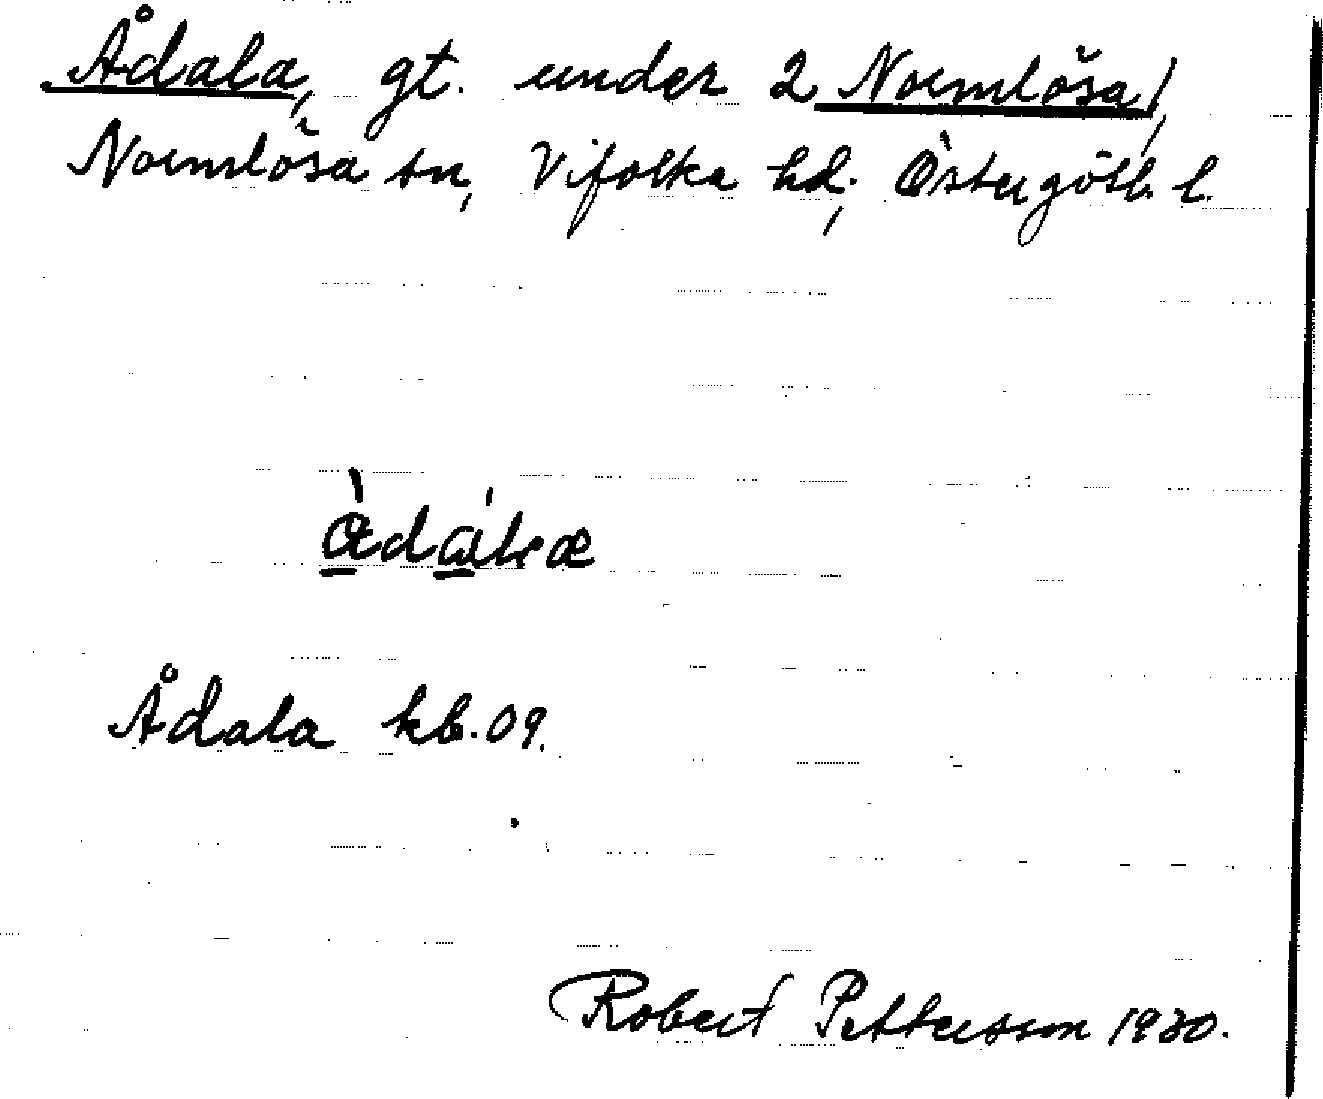 Ådala, gt. under 2 Normlösa,
Normlösa sn, Vifolka hd, Östergötl. l.
Ådala kb. 09.
Robert Pettersson 1930.